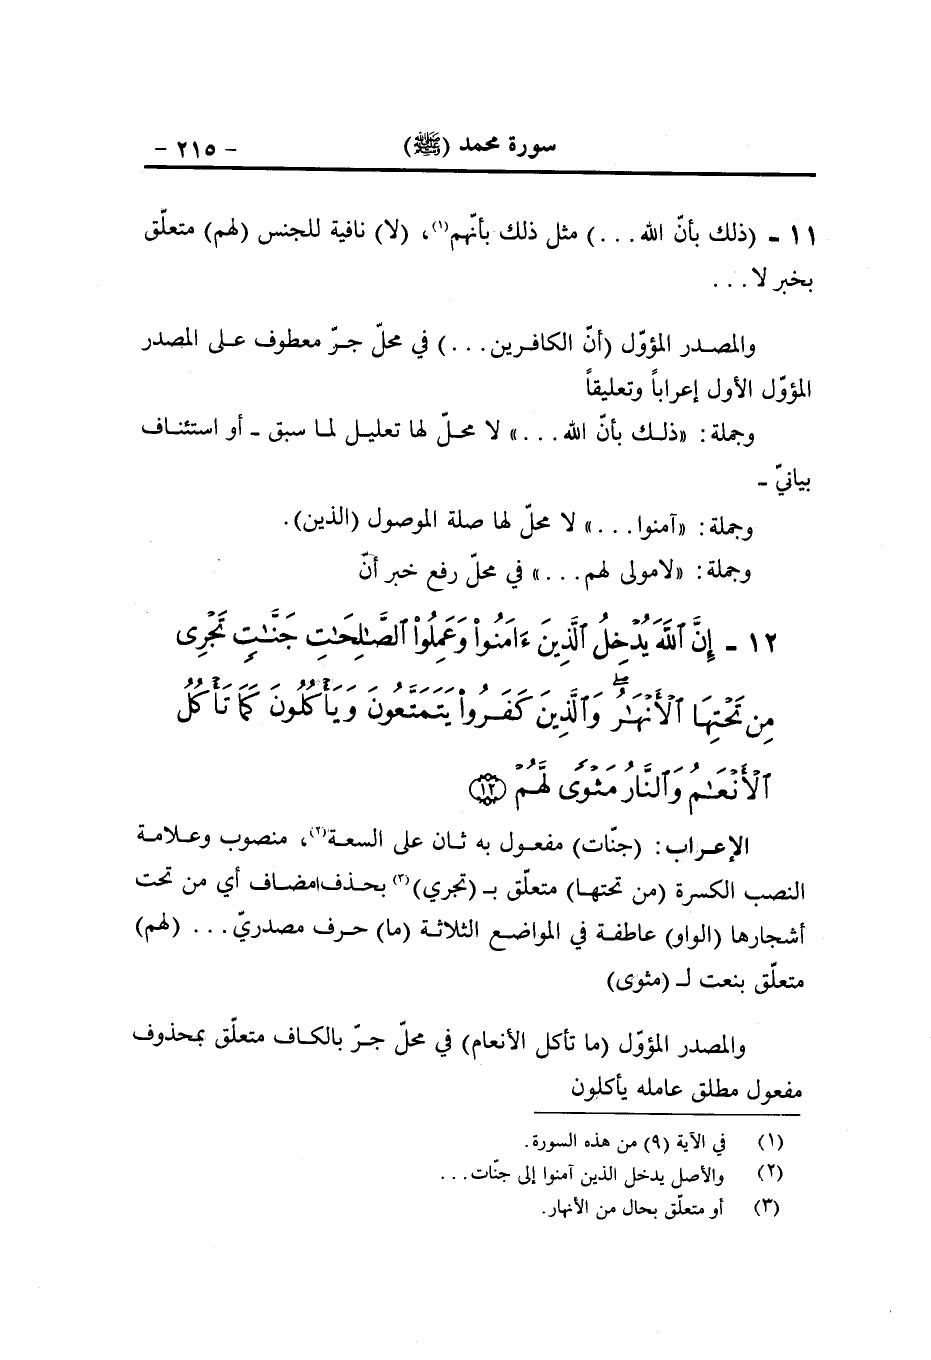 سورة محمد (ﷺ) - ٢١٥ -
١١ - (ذلك بأنّ الله . . .) مثل ذلك بأنّهم(١)، (لا) نافية للجنس (لهم) متعلّق
بخبر لا . . .
والمصدر المؤوّل (أنّ الكافرين . . .) في محلّ جرّ معطوف على المصدر
المؤوّل الأول إعراباً وتعليقاً
وجملة: «ذلك بأنّ الله . . .» لا محلّ لها تعليل لما سبق - أو استئناف
بيانيّ -
وجملة: «آمنوا . . .» لا محلّ لها صلة الموصول (الذين).
وجملة: «لامولى لهم . . .» في محلّ رفع خبر أنّ
١٢ - إِنَّ ٱللَّهَ يُدْخِلُ ٱلَّذِينَ ءَامَنُوا۟ وَعَمِلُوا۟ ٱلصَّٰلِحَٰتِ جَنَّٰتٍ تَجْرِى
مِن تَحْتِهَا ٱلْأَنْهَٰرُ ۖ وَٱلَّذِينَ كَفَرُوا۟ يَتَمَتَّعُونَ وَيَأْكُلُونَ كَمَا تَأْكُلُ
ٱلْأَنْعَٰمُ وَٱلنَّارُ مَثْوًى لَّهُمْ ﴿١٢﴾
الإعراب: (جنّات) مفعول به ثان على السعة(٢)، منصوب وعلامة
النصب الكسرة (من تحتها) متعلّق بـ (تجري)(٣) بحذف مضاف أي من تحت
أشجارها (الواو) عاطفة في المواضع الثلاثة (ما) حرف مصدريّ . . . (لهم)
متعلّق بنعت لـ (مثوى)
والمصدر المؤوّل (ما تأكل الأنعام) في محلّ جرّ بالكاف متعلّق بمحذوف
مفعول مطلق عامله يأكلون
(١) في الآية (٩) من هذه السورة.
(٢) والأصل يدخل الذين آمنوا إلى جنّات . . .
(٣) أو متعلّق بحال من الأنهار.